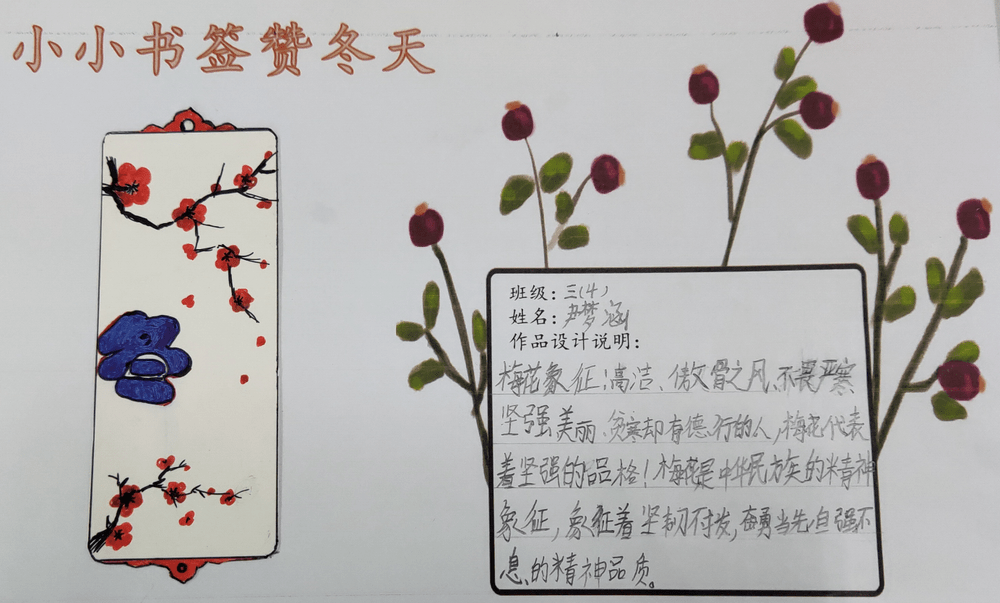 小小书签赞冬天
班级：三(4)
姓名：尹梦涵
作品设计说明：
梅花象征：高洁、傲骨之风、不畏严寒
坚强美丽、贫寒却有德行的人，梅花代表
着坚强的品格！梅花是中华民族的精神
象征，象征着坚韧不拔，奋勇当先，自强不
息的精神品质。